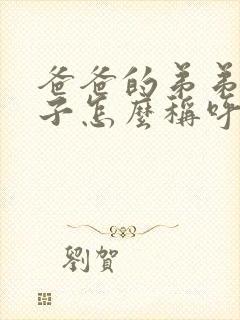 爸爸的弟弟
子怎麼稱呼
劉賀